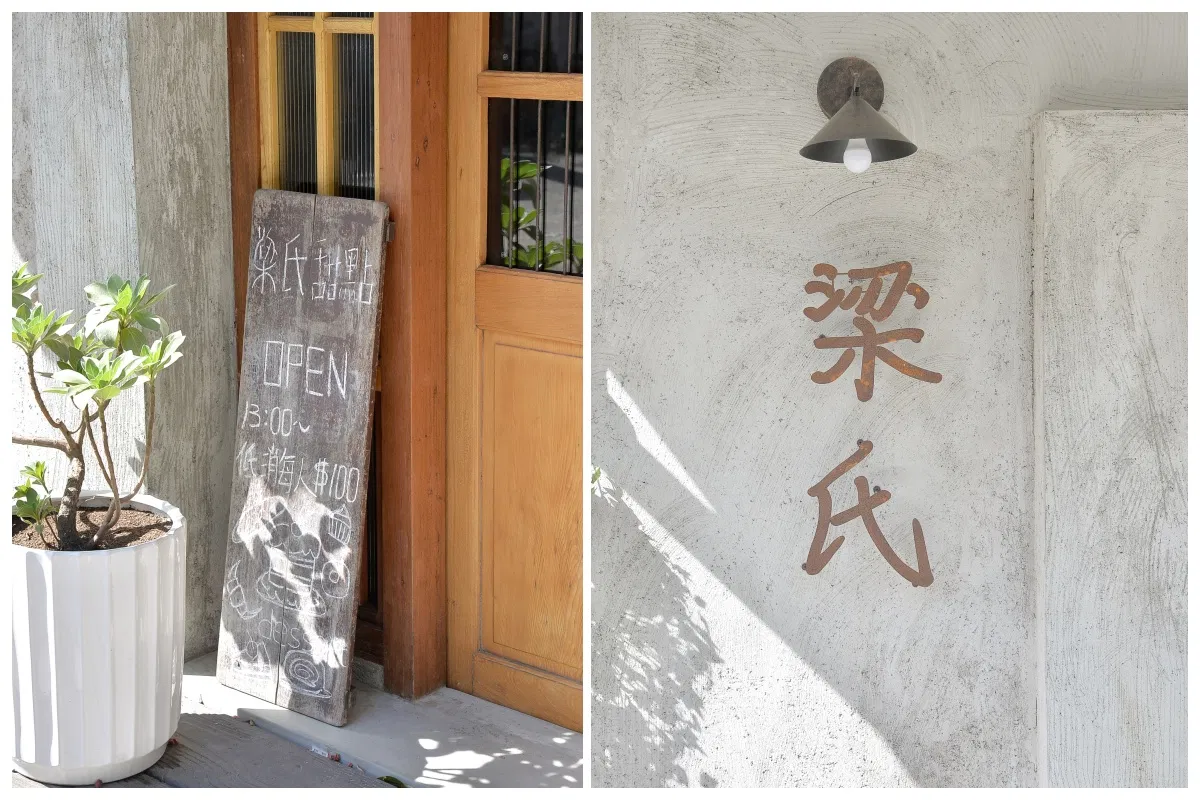 梁氏甜點
OPEN
13:00~
低消每人$100
梁氏